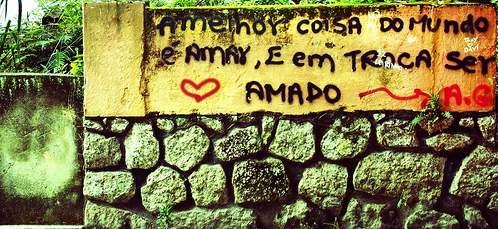 A melhor coisa do mundo
é AMAR, E em TROCA Ser
AMADO A.C